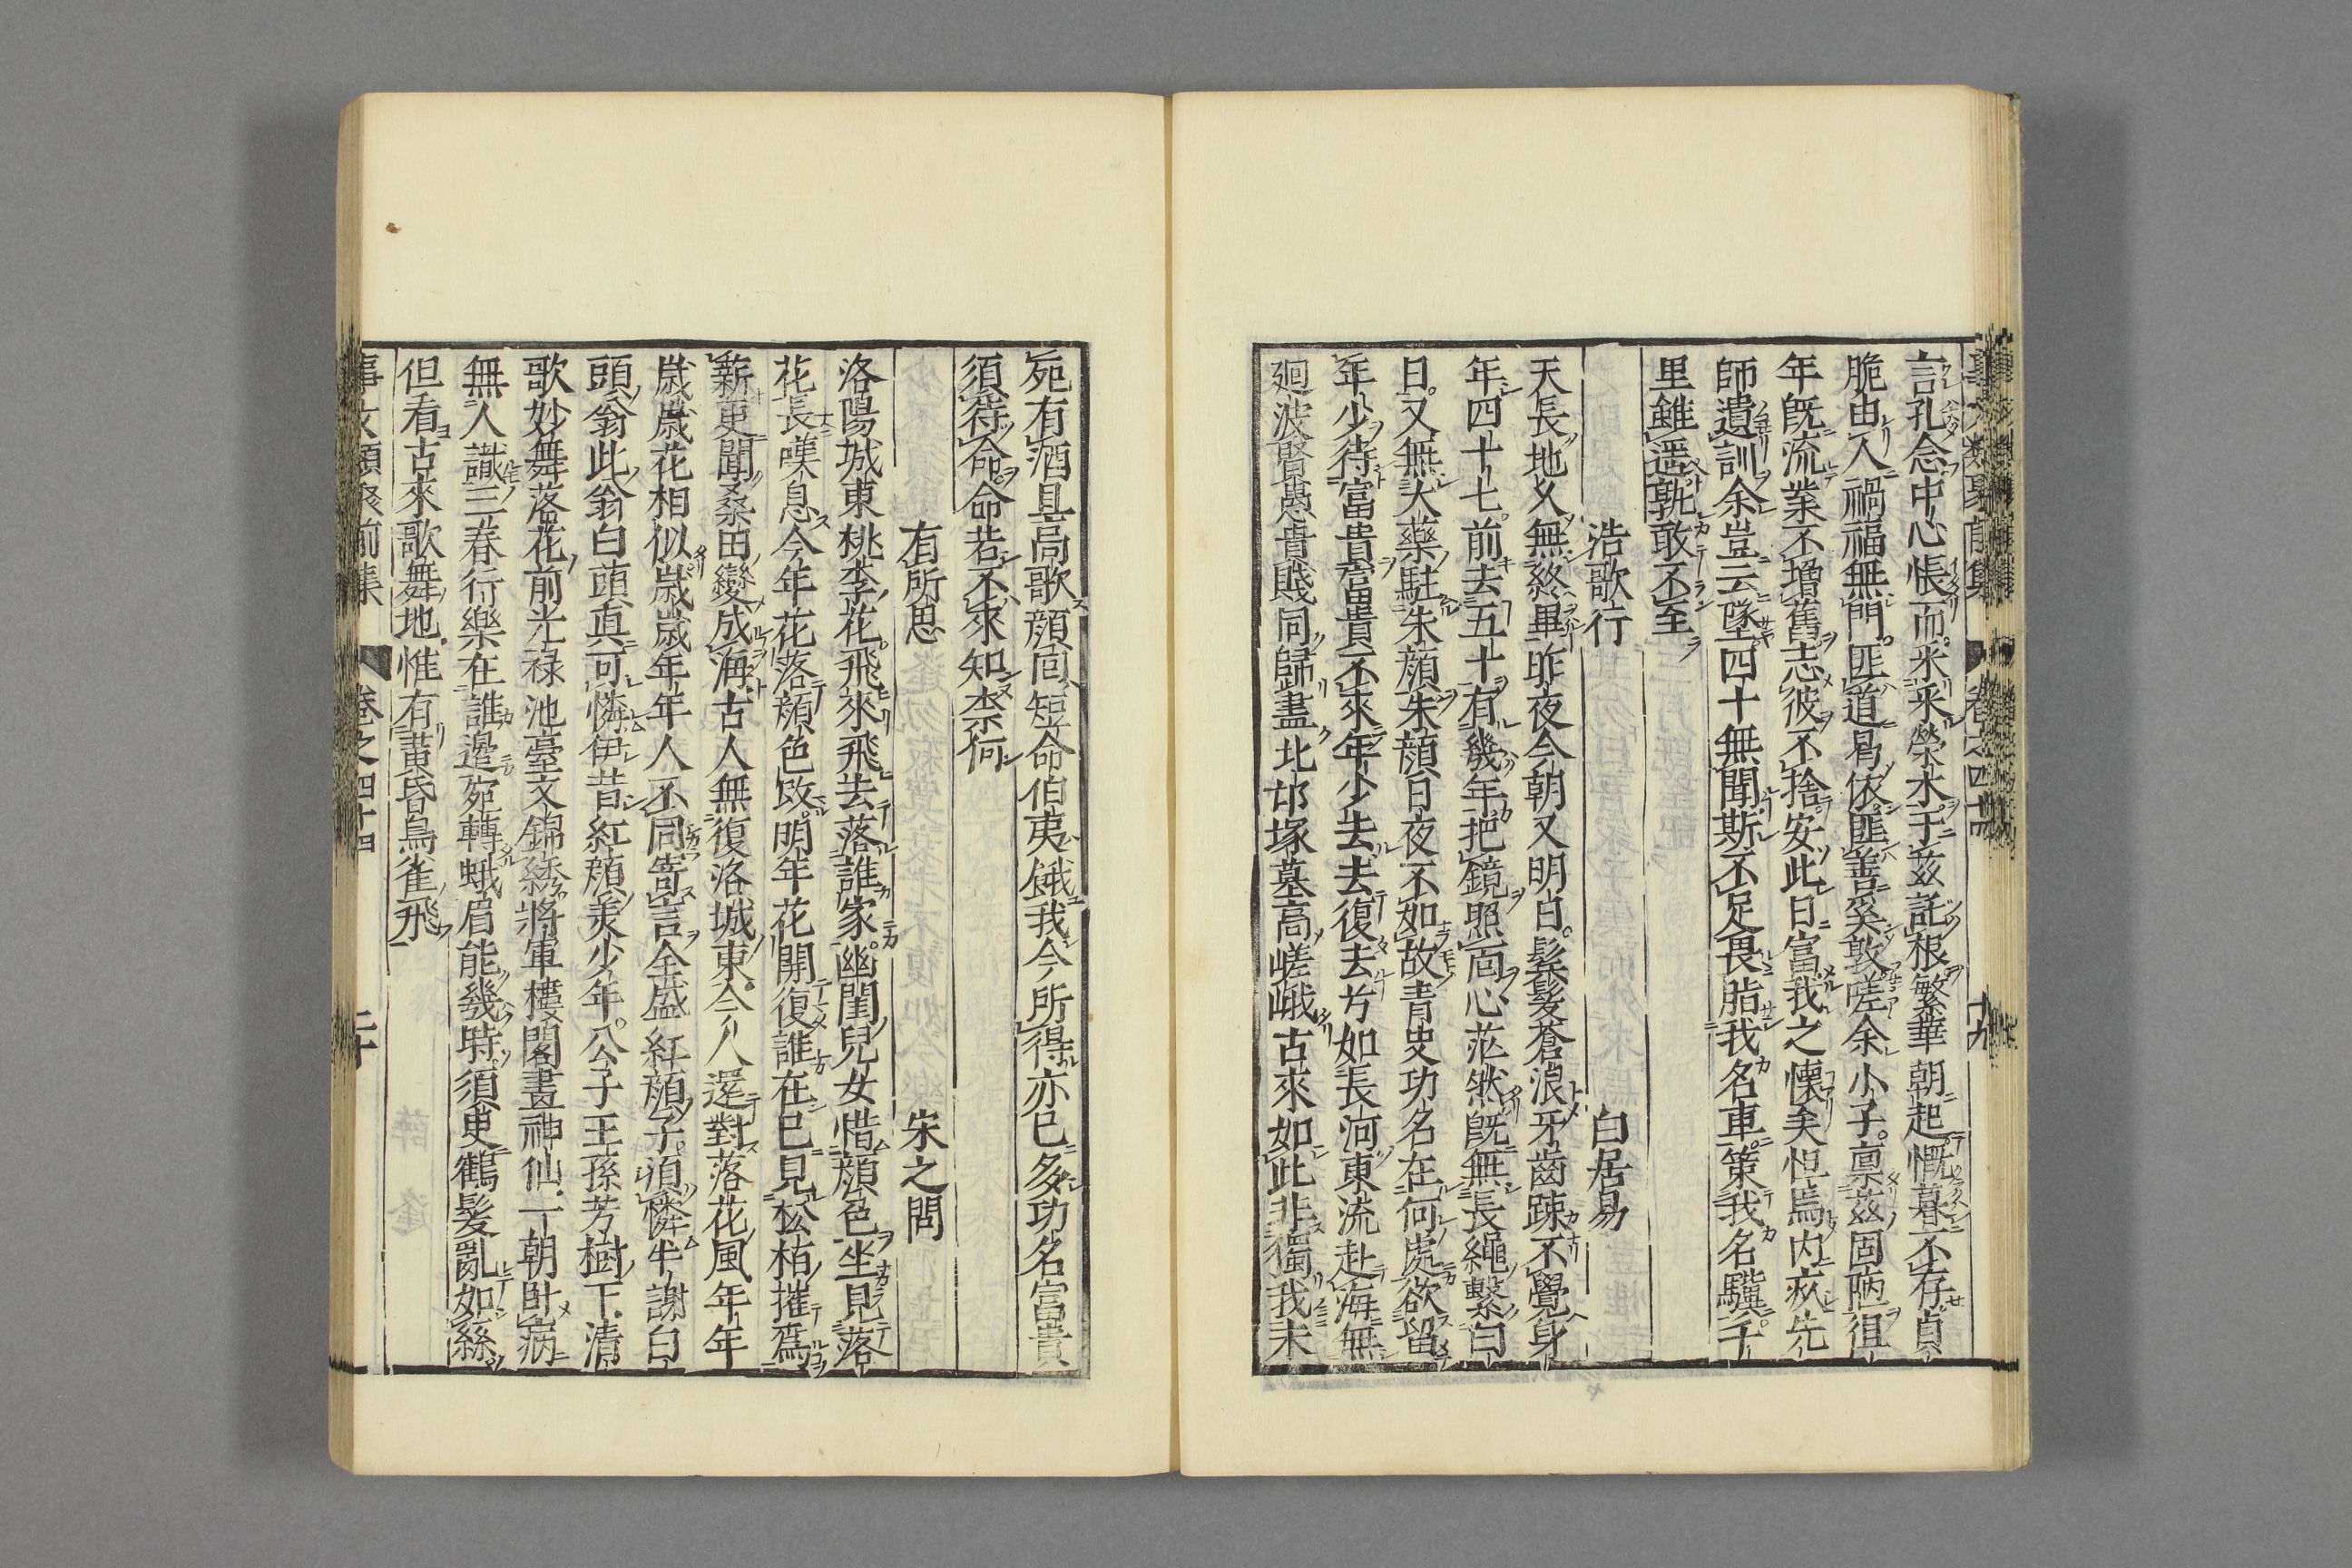 言孔念中心悵而采采榮木于茲託根繁華朝起慨暮不存貞
脆由人禍福無門匪道曷依匪善奚敦嗟余小子禀茲固陋徂
年既流業不增舊志彼不捨安此日富我之懷矣怛焉内疚先
師遺訓余豈云墜四十無聞斯不足畏脂我名車策我名驥千
里雖遥孰敢不至
浩歌行 白居易
天長地乆無終畢昨夜今朝又明日鬂髮蒼浪牙齒踈不覺身
年四十七前去五十有幾年把鏡照面心茫然既無長繩繫白
日又無大藥駐朱顔朱顔日夜不如故青史功名在何處欲留
年少待富貴富貴不來年少去去復去兮如長河東流赴海無
廻波賢愚貴賤同歸盡北邙塚墓高嵯峨古來如此非獨我未
死有酒且高歌顔囘短命伯夷餓我今所得亦已多功名富貴
須待命命若不來知柰何
有所思 宋之問
洛陽城東桃李花飛來飛去落誰家幽閨兒女惜顔色坐見落
花長嘆息今年花落顔色改明年花開復誰在已見松栢摧爲
薪更聞桑田變成海古人無復洛城東今人還對落花風年年
歳歳花相似歳歳年年人不同寄言全盛紅顔子須憐半謝白
頭翁此翁白頭真可憐伊昔紅顔美少年公子王孫芳樹下清
歌妙舞落花前光禄池臺文錦綉將軍樓閣畫神仙一朝卧病
無人識三春行樂在誰邉宛轉蛾眉能幾時須臾鶴髮亂如絲
但看古來歌舞地惟有黄昏鳥雀飛
事文類聚前集 卷之四十四 二十